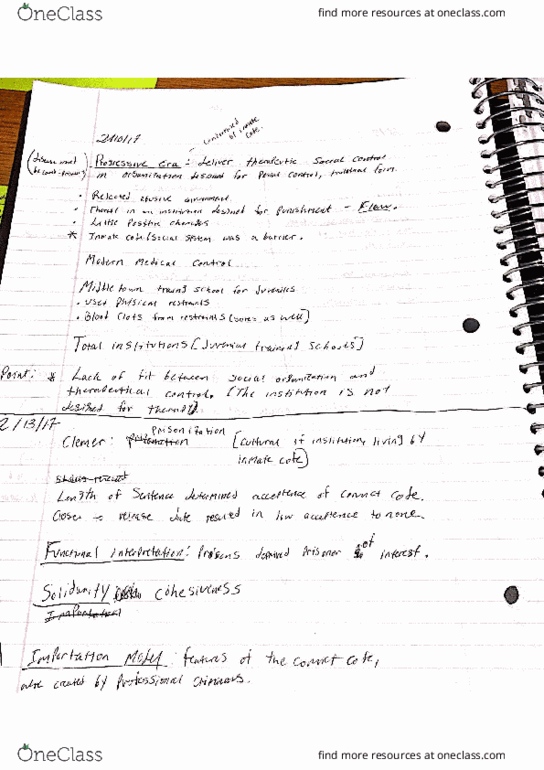 OneClass
find more resources at oneclass.com
2/10/17
inmate
code.
Progressive Era: deliver therapeutic social control
in organization designed for penal control, form.
• Released abusive environment.
in an institution designed for punishment - Flaw.
• Little Positive changes
* Inmate code/social system was a barrier.
Modern Medical Control
Middletown school for Juveniles
• Used Physical restraints
• Blood Clots from restraints [sores as well]
Total institutions [Juvenile schools]
Point: * Lack of fit between social organization and
control. [The institution is not
for
2/13/17
Clemer: prisonization [cultural of institution, living by
inmate code]
Length of Sentence determined acceptance of convict code.
Closer to release date resulted in low acceptance to none.
Functional interpretation: Prisons Prisoner of interest.
Solidarity cohesiveness
Importation Model: features of the convict code,
were created by Professional criminals.
OneClass
find more resources at oneclass.com